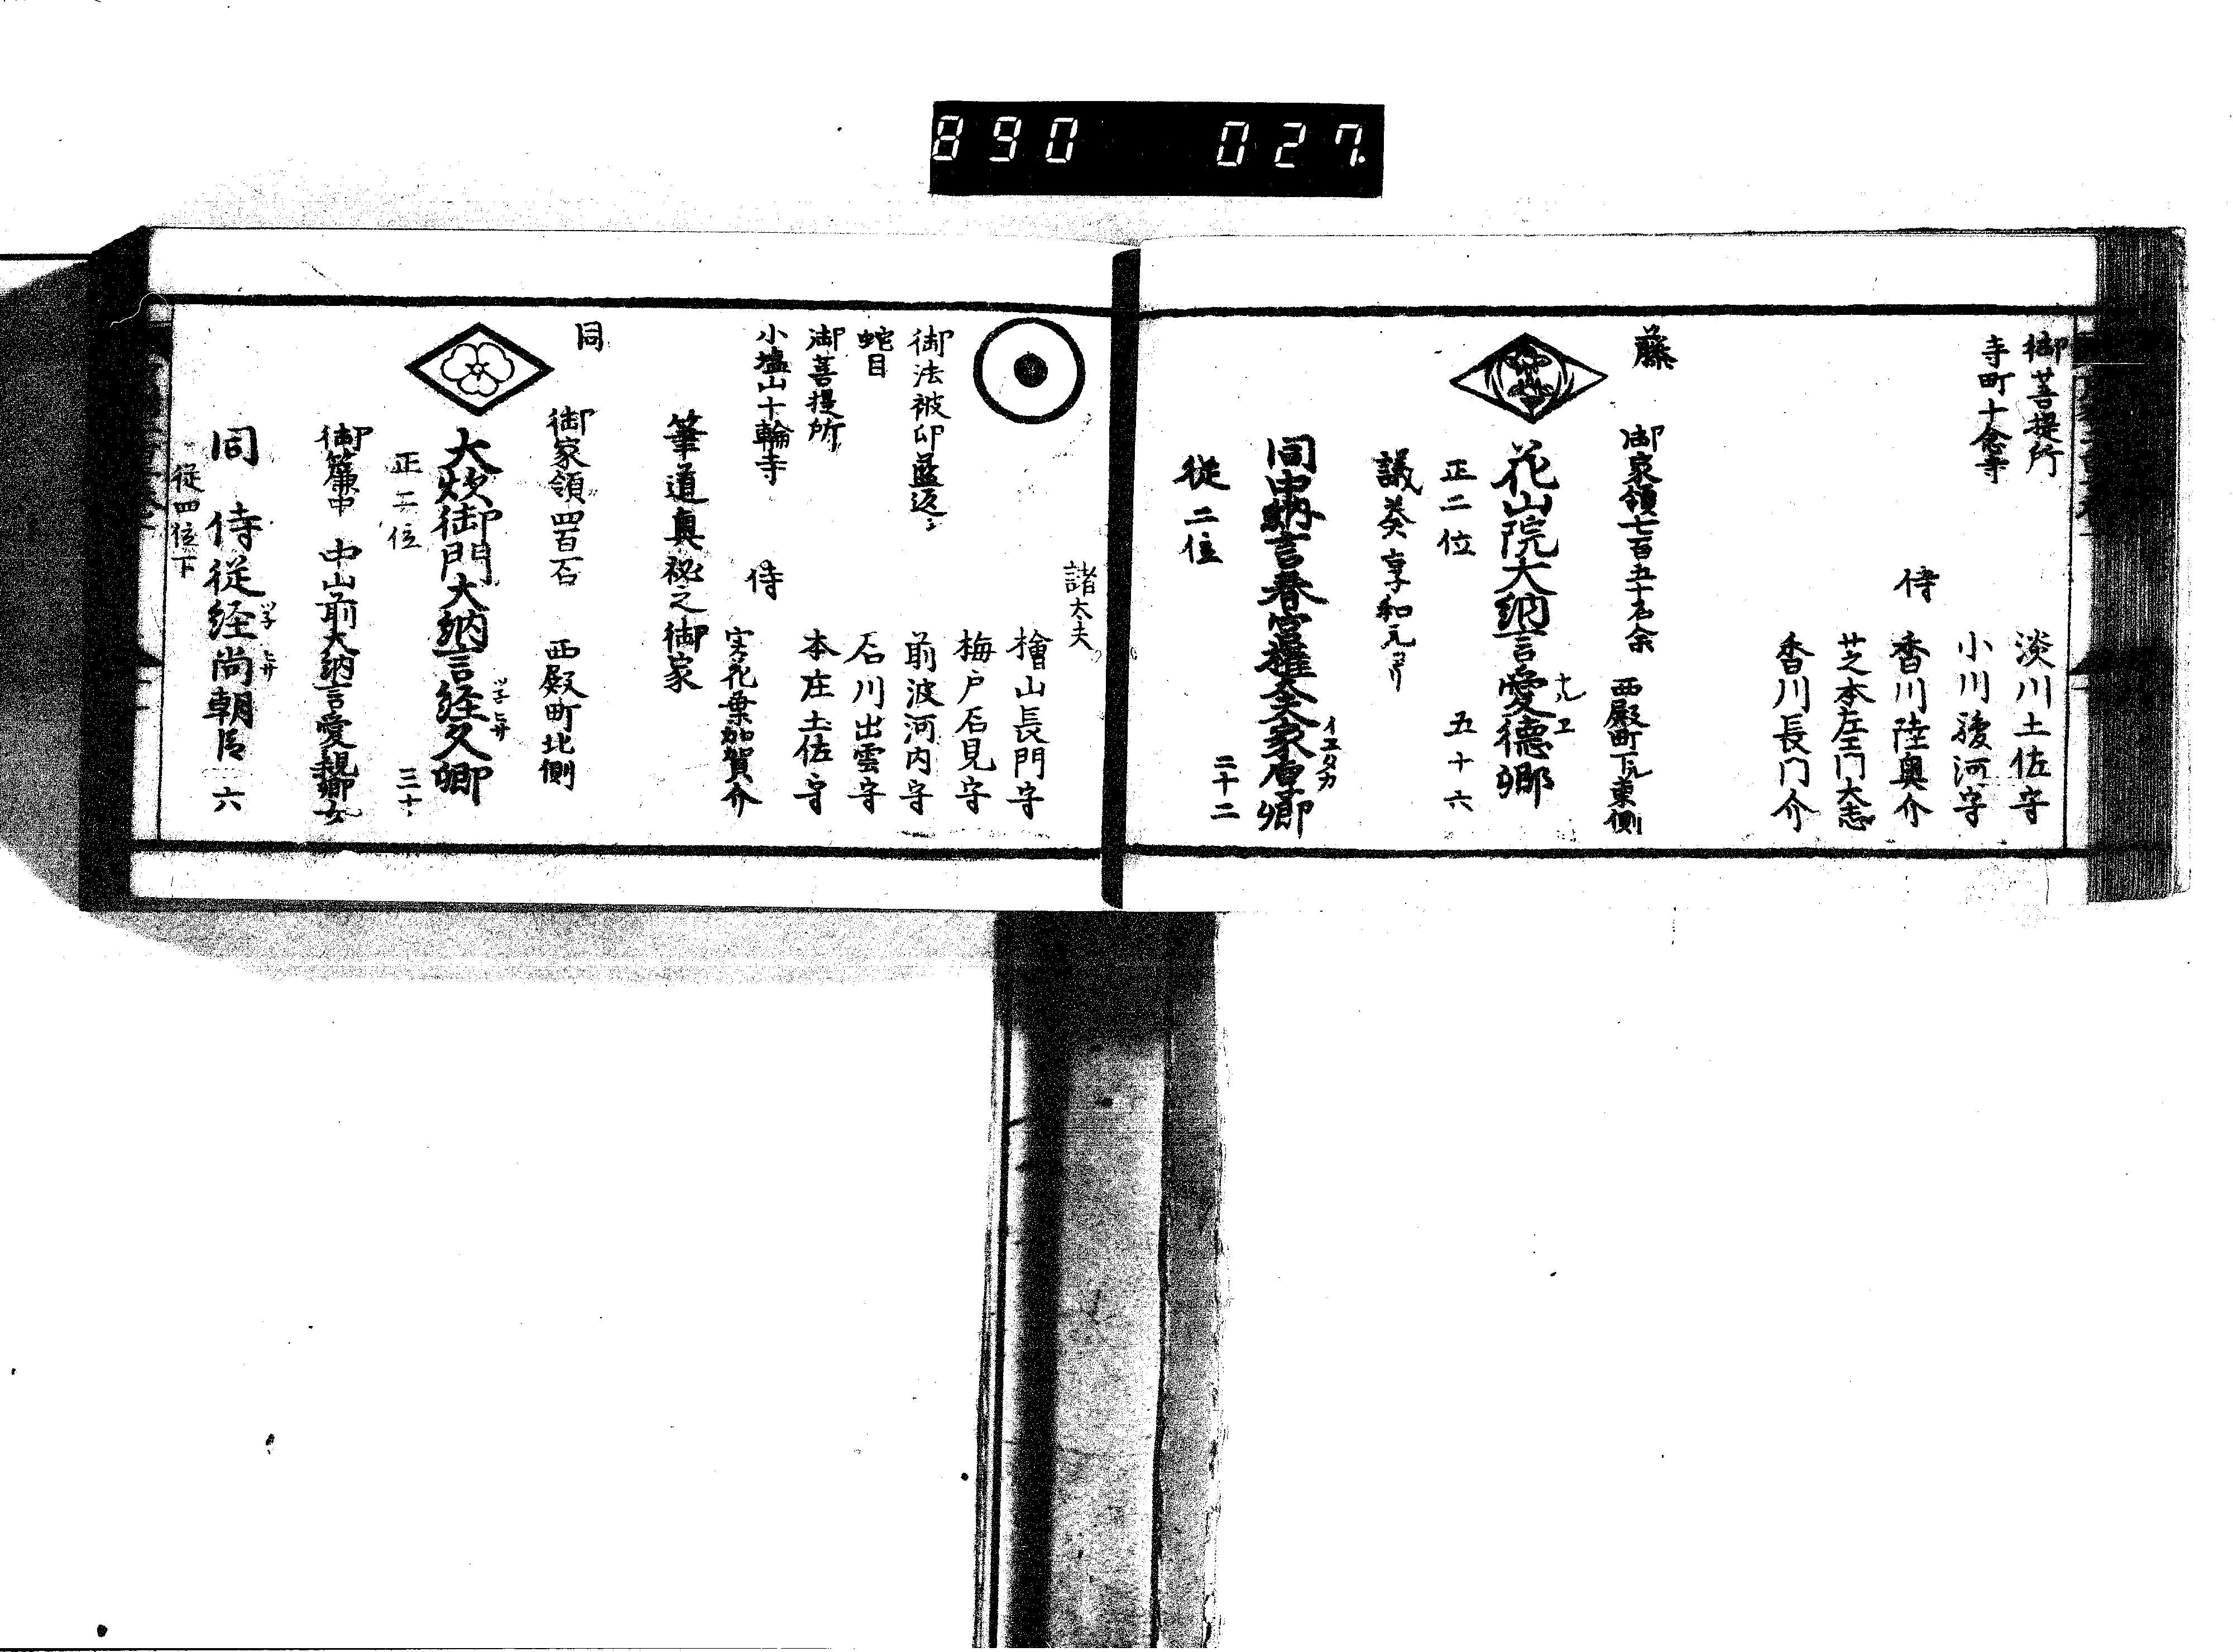 890 027
御菩提所
寺町十念寺
淡川土佐守
小川駿河守
侍
香川陸奥介
芝本左衛門大志
香川長門介
藤
御家領七百五十石余
西殿町下ル東側
花山院大納言愛徳卿
正二位
五十六
議奏享和元ヨリ
同中納言春宮権大夫家厚卿
イエアツ
従二位
二十二
諸太夫
檜山長門守
梅戸石見守
前波河内守
石川出雲守
本庄土佐守
御法被印藍返シ
蛇目
御菩提所
小塩山十輪寺
侍
宇花葉加賀介
筆道奥秘之御家
同
御家領四百石
西殿町北側
大炊御門大納言経久卿
正二位
三十
御簾中
中山前大納言愛親卿女
同
侍従経尚朝臣
六
従四位下